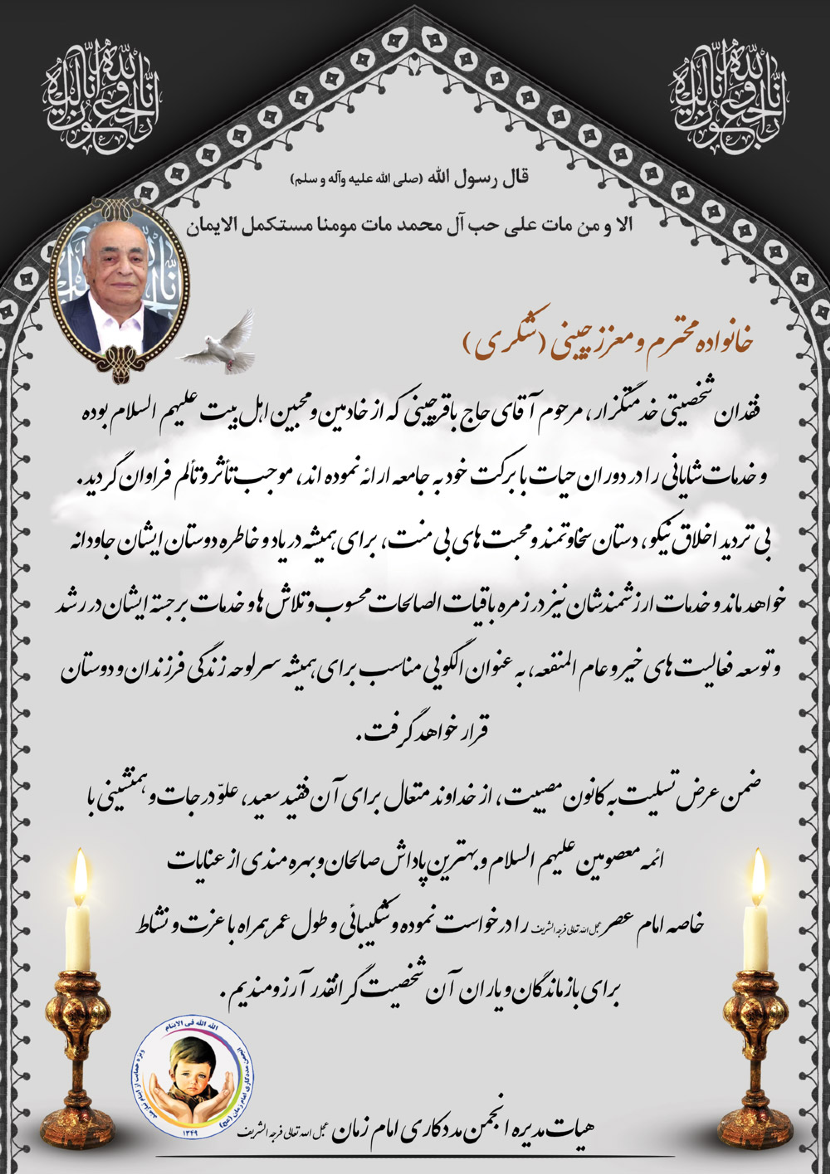 انا لله و انا الیه راجعون
انا لله و انا الیه راجعون
قال رسول الله (صلی الله علیه وآله و سلم)
الا و من مات علی حب آل محمد مات مومنا مستکمل الایمان
خانواده محترم و معزز چینی (شکری)
فقدان شخصیتی خدمتگزار، مرحوم آقای حاج باقر چینی که از خادمین و محبین اهل بیت علیهم السلام بوده
و خدمات شایانی را در دوران حیات با برکت خود به جامعه ارائه نموده اند، موجب تأثر و تألم فراوان گردید.
بی تردید اخلاق نیکو، دستان سخاوتمند و محبت های بی منت، برای همیشه در یاد و خاطره دوستان ایشان جاودانه
خواهد ماند و خدمات ارزشمندشان نیز در زمره باقیات الصالحات محسوب و تلاش ها و خدمات برجسته ایشان در رشد
و توسعه فعالیت های خیر و عام المنفعه، به عنوان الگویی مناسب برای همیشه سرلوحه زندگی فرزندان و دوستان
قرار خواهد گرفت.
ضمن عرض تسلیت به کانون مصیبت، از خداوند متعال برای آن فقید سعید، علوّ درجات و همنشینی با
ائمه معصومین علیهم السلام و بهترین پاداش صالحان و بهره مندی از عنایات
خاصه امام عصر عجل الله تعالی فرجه الشریف را درخواست نموده و شکیبائی و طول عمر همراه با عزت و نشاط
برای بازماندگان و یاران آن شخصیت گرانقدر آرزومندیم.
الله الله فی الایتام
۱۳۴۹
هیات مدیره انجمن مددکاری امام زمان عجل الله تعالی فرجه الشریف